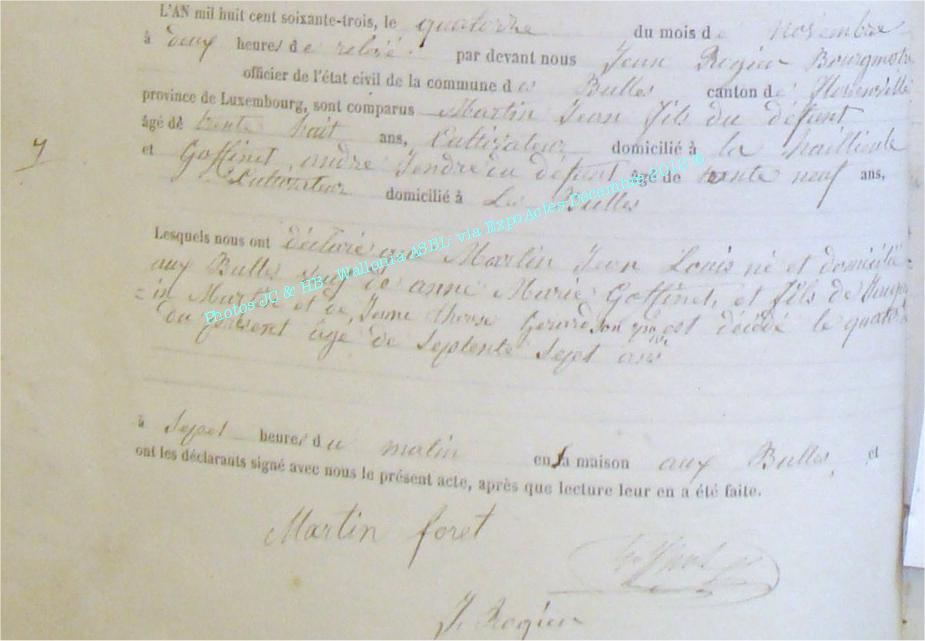 L'AN mil huit cent soixante-trois, le quatorze du mois de novembre
à deux heures de relevé par devant nous Jean Rogier Bourgmestre
officier de l'état civil de la commune des Bulles canton de Florenville
province de Luxembourg, sont comparus Martin Jean fils du défunt
âgé de trente huit ans, Cultivateur domicilié à la
et Goffinet andre Gendre du défunt âgé de trente neuf ans,
Cultivateur domicilié à Les Bulles
Lesquels nous ont déclaré que Martin Jean Louis né et domicilié
aux Bulles de anne Marie Goffinet, et fils de
Martin et de Jeanne therese Gerard, est décédé le quatorze
du présent âgé de septente sept ans
à sept heures du matin en sa maison aux Bulles, et
ont les déclarants signé avec nous le présent acte, après que lecture leur en a été faite.
Martin foret
J. Rogier
Photos JC & HB. Wallonia ASBL, via ExpoActes Décembre
7